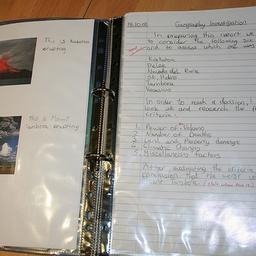 This is Krakatoa
erupting
This is Mount
Tambora erupting
Geography Investigation
In preparing this report we
to consider the following six
and to assess which one was
Krakatoa
Pelee
Nevado del Ruiz
St. Helens
Tambora
Vesuvius
In order to reach a decision,
look at and research the
criteria:
1. Power of Volcano
2. Number of Deaths
3. Land and Property damage
4. Climatic Changes
5. Miscellaneous factors
After investigating the criteria
conclusion that the worst
was Tambora